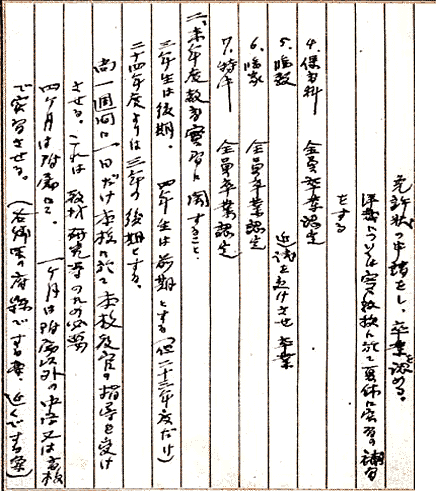 免許状の申請をし、卒業を認める。
については
に於て夏休に実習の補習
をする
4. 保育科 全員卒業認定
5. 臨教 を受けさせ卒業
6. 臨家 全員卒業認定
7. 特 全員卒業認定
二、来年度教育実習に関すること、
三年生は後期。 四年生は前期とする(但二十三年度だけ)
二十四年度よりは三年の後期とする。
尚一週間に一日だけ本校に於て本校教官の指導を受け
させる。これは 教材研究等のため必要
四ヶ月は附属にて、 一ヶ月は附属以外の中学又は高校
で実習させる。(各郷里の府県でする者、近くでする者)